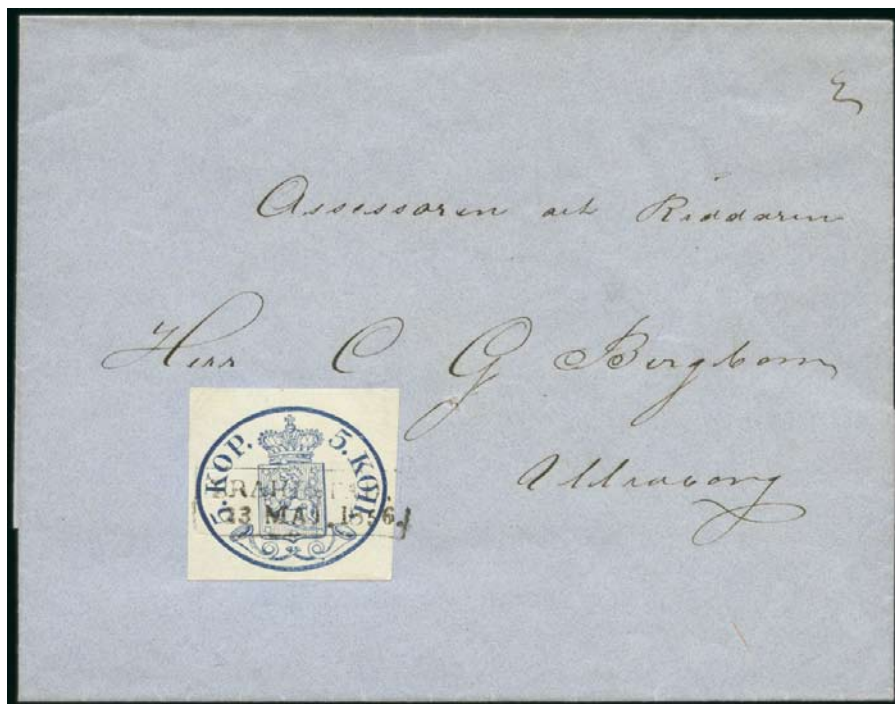 Assessoren och Riddaren
Herr C G Bergbom
Uleåborg
5. KOP. 5. КОП.
BRAHESTAD.
23 MAJ. 1856.